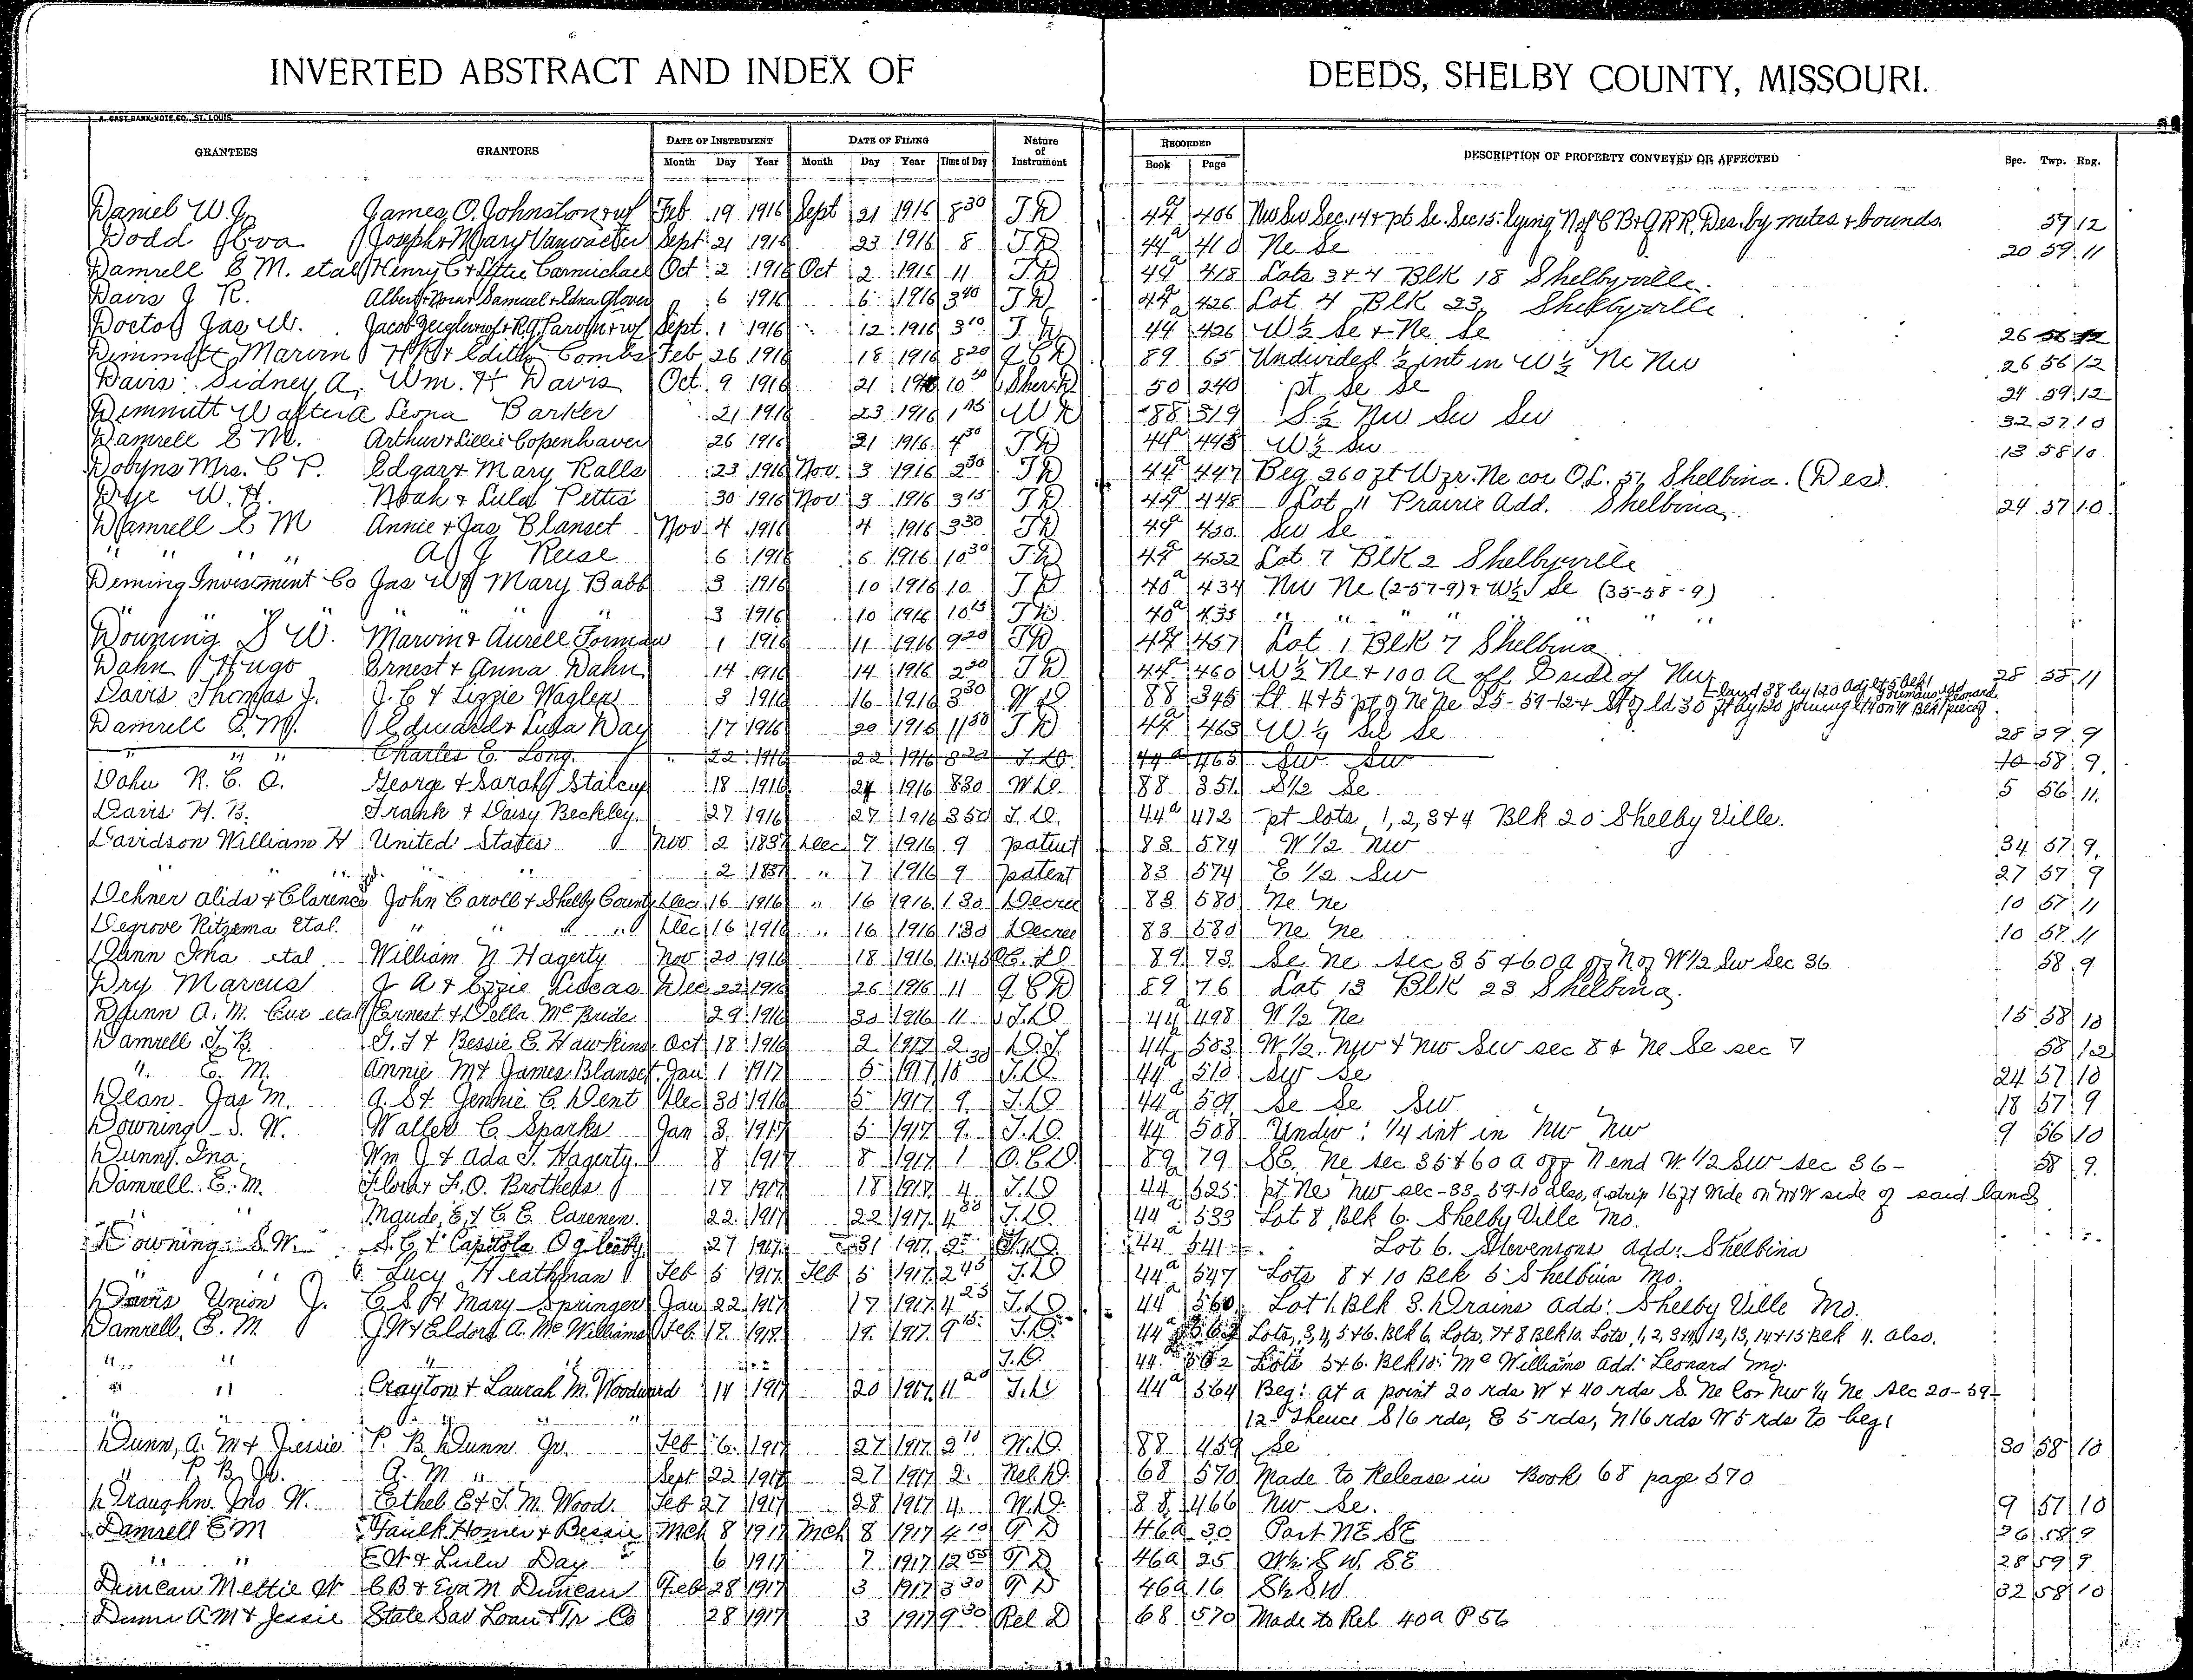 INVERTED ABSTRACT AND INDEX OF DEEDS, SHELBY COUNTY, MISSOURI.
A. GAST BANK NOTE CO., ST. LOUIS.
GRANTEES GRANTORS DATE OF INSTRUMENT DATE OF FILING Nature of Instrument RECORDED DESCRIPTION OF PROPERTY CONVEYED OR AFFECTED Spc. Twp. Rng.
Month Day Year Month Day Year Time of Day Book Page
Daniel W. J. James O. Johnston & wf Feb 19 1916 Sept 21 1916 8 30 T D 44a 406 Nw Sw Sec. 14 & pt Se. Sec 15. lying N of C B & Q R R. Des. by metes & bounds. 57 12
Dodd Joseph & Mary Sept 21 1916 23 1916 8 T D 44a 410 Ne Se 20 59 11
Damrell E M. etal Henry C & Lettie Carmichael Oct 2 1916 Oct 2 1916 11 T D 44a 418 Lots 3 & 4 Blk 18 Shelbyville
Davis J R. Albert & Nora & Samuel & Edna Glover 6 1916 6 1916 3 40 T D 44a 426 Lot 4 Blk 23 Shelbyville
Doctor Jas W. Jacob & wf Sept 1 1916 12 1916 3 10 T D 44a 426 W ½ Se & Ne Se 26 56 12
Dimmitt Marvin H K & Edith Combs Feb 26 1916 18 1916 8 20 Q C D 89 65 Undivided ½ int in W ½ Ne Nw 26 56 12
Davis Sidney A. Wm. H Davis Oct. 9 1916 21 1916 10 Sher D 50 240 pt Se Se 24 59 12
Dimmitt Walter A Leona Barker 21 1916 23 1916 1 W D 88 319 S ½ Nw Sw Sw 32 57 10
Damrell E M. Arthur & Lillie Copenhaver 26 1916 31 1916 4 30 T D 44a 443 W ½ Sw 13 58 10
Dobyns Mrs. C P. Edgar & Mary Ralls 23 1916 Nov. 3 1916 2 30 T D 44a 447 Beg 260 ft W fr. Ne cor O.L. 51 Shelbina. (Des).
Dye W. H. Noah & Lula Pettis 30 1916 Nov 3 1916 3 15 T D 44a 448 Lot 11 Prairie Add. Shelbina
Damrell E M Annie & Jas Blanset Nov 4 1916 4 1916 3 30 T D 44a 450 Sw Se 24 57 10
" " " " A J Reise 6 1916 6 1916 10 30 T D 44a 452 Lot 7 Blk 2 Shelbyville
Deming Investment Co Jas W & Mary Babb 3 1916 10 1916 10 T D 40a 434 Nw Ne (2-57-9) & W½ Se (35-58-9)
" " " " " " 3 1916 10 1916 10 15 T D 40a 435 " " " " " "
Downing S W. Marvin & Aurell Forman 1 1916 11 1916 9 20 T D 44a 457 Lot 1 Blk 7 Shelbina
Dahn Hugo Ernest & Anna Dahn 14 1916 14 1916 2 30 T D 44a 460 W ½ Ne & 100 A off E side of Nw 28 55 11
Davis Thomas J. J. C & Lizzie Wagler 3 1916 16 1916 3 30 W D 88 345 Lt 4 & 5 pt of Ne Ne 25-59-12
Damrell E. M. Edward & Lula Day 17 1916 20 1916 11 30 T D 44a 463 W ½ Sw Se 28 59 9
" " " Charles E. Long. " 22 1916 22 1916 8 30 T D. 44a 465 Sw Sw 10 58 9
Dohn R. C. A. George & Sarah Staleup 18 1916 24 1916 830 W D. 88 351 S½ Se 5 56 11
Davis H. B. Frank & Daisy Beckley. 27 1916 27 1916 350 T. D. 44a 472 pt lots 1, 2, 3 & 4 Blk 20 Shelby Ville.
Davidson William H United States Nov 2 1837 Dec 7 1916 9 patent 83 574 W 1/2 Nw 34 57 9
" " " " 2 1837 " 7 1916 9 patent 83 574 E 1/2 Sw 27 57 9
Dehner Alida & Clarence John Caroll & Shelby County Dec 16 1916 " 16 1916 130 Decree 83 580 Ne Ne 10 57 11
Degrove Ritzema Etal. " " " " Dec 16 1916 " 16 1916 1:30 Decree 83 580 Ne Ne 10 57 11
Dunn Ina etal William N Hagerty Nov 20 1916 18 1916 11:45 Q.C. D 89 73 Se Ne Sec 35 & 60 a off N of W 1/2 Sw Sec 36 58 9
Dry Marcus J A & Lizzie Lucas Dec 22 1916 26 1916 11 Q C D 89 76 Lot 13 Blk 23 Shelbina.
Dunn A. M. etal Ernest & Della McBride 29 1916 30 1916 11 T. D 44a 498 W 1/2 Ne 15 58 10
Damrell J B. G. T & Bessie E. Hawkins Oct 18 1916 2 1917 2 D. T. 44 503 W. 1/2. Nw & Nw Sw sec 8 & Ne Se sec 7 58 12
" E. M. Annie M & James Blanset Jan 1 1917 5 1917 10 30 T. D. 44a 510 Sw Se 24 57 10
Dean Jas M. A. S & Jennie C. Dent Dec 30 1916 5 1917 9 T. D 44a 509 Se Se Sw 18 57 9
Downing S. W. Walter C. Sparks Jan 3 1917 5 1917 9 T. D. 44a 508 Undiv: 1/4 int in Nw Nw 9 56 10
Dunn Ina. Wm J & Ada J. Hagerty. 8 1917 8 1917 1 Q. C D. 89 79 SE. Ne Sec. 35 & 60 a off N end W 1/2 Sw Sec 36 - 58 9.
Damrell E. M. Flora & F. O. Brothers 17 1917 18 1917 4 T. D 44a 525 pt Ne Nw sec-33-59-10 also, a strip 16 ft wide on W side of said land
" " Maude E. & C. C. Carenen. 22 1917 22 1917 4 30 T. D. 44a 533 Lot 8 Blk 6. Shelby Ville Mo.
Downing S. W. S. C & Capitola Oglesby 27 1917 31 1917 T. D. 44a 541 Lot 6. Stevensons Add: Shelbina
" " Lucy Heathman Feb 5 1917 Feb 5 1917 2 45 T. D 44a 547 Lots 8 & 10 Blk 5 Shelbina Mo.
Davis Union J. C. S & Mary Springer Jan 22 1917 17 1917 4 25 T. D. 44a 560 Lot 1. Blk 3. Drains Add: Shelby Ville Mo.
Damrell, E. M. J W & Eldora A. McWilliams Feb. 17 1917 19 1917 9 15 T. D. 44a 562 Lots, 3, 4, 5 & 6. Blk 6, Lots, 7 & 8 Blk 10. Lots, 1, 2, 3 12, 13, 14 & 15 Blk 11. also.
" " " T. D. 44 562 Lots 5 & 6. Blk 10: McWilliams Add: Leonard Mo.
" " Crayton & Laurah M. Woodward 14 1917 20 1917 11 20 T. D 44a 564 Beg: at a point 20 rds W & 40 rds S. Ne Cor Nw ¼ Ne Sec 20-59-
" " " " 12- Thence S 16 rds, E 5 rds, N 16 rds W 5 rds to beg:
Dunn, A. M & Jessie P. B Dunn Jr. Feb 6 1917 27 1917 2 10 W. D. 88 459 Se 30 58 10
" P. B. Jr. A. M " Sept 22 27 1917 2 Rel. D. 68 570 Made to Release in Book 68 page 570
Draughn. Jno W. Ethel E & J. M. Wood. Feb 27 1917 28 1917 4 W. D. 88 466 Nw Se. 9 57 10
Damrell E M Faulk Homer & Bessie Mch 8 1917 Mch 8 1917 4 10 T D 46a 30 Part NE SE 26 58 9
" " E W & Lulu Day 6 1917 7 1917 12 55 T. D 46a 25 W½ S W. SE 28 59 9
Duncan Mettie W C B & Eva M Duncan Feb 28 1917 3 1917 3 30 T D 46a 16 S½ SW 32 58 10
Dunn A M & Jessie State Sav Loan & Tr Co 28 1917 3 1917 9 30 Rel D 68 570 Made to Rel 40a P 56